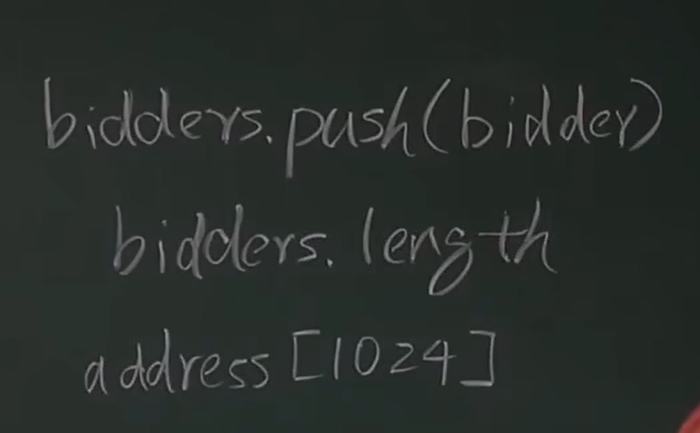 bidders.push(bidder)
bidders.length
address[1024]